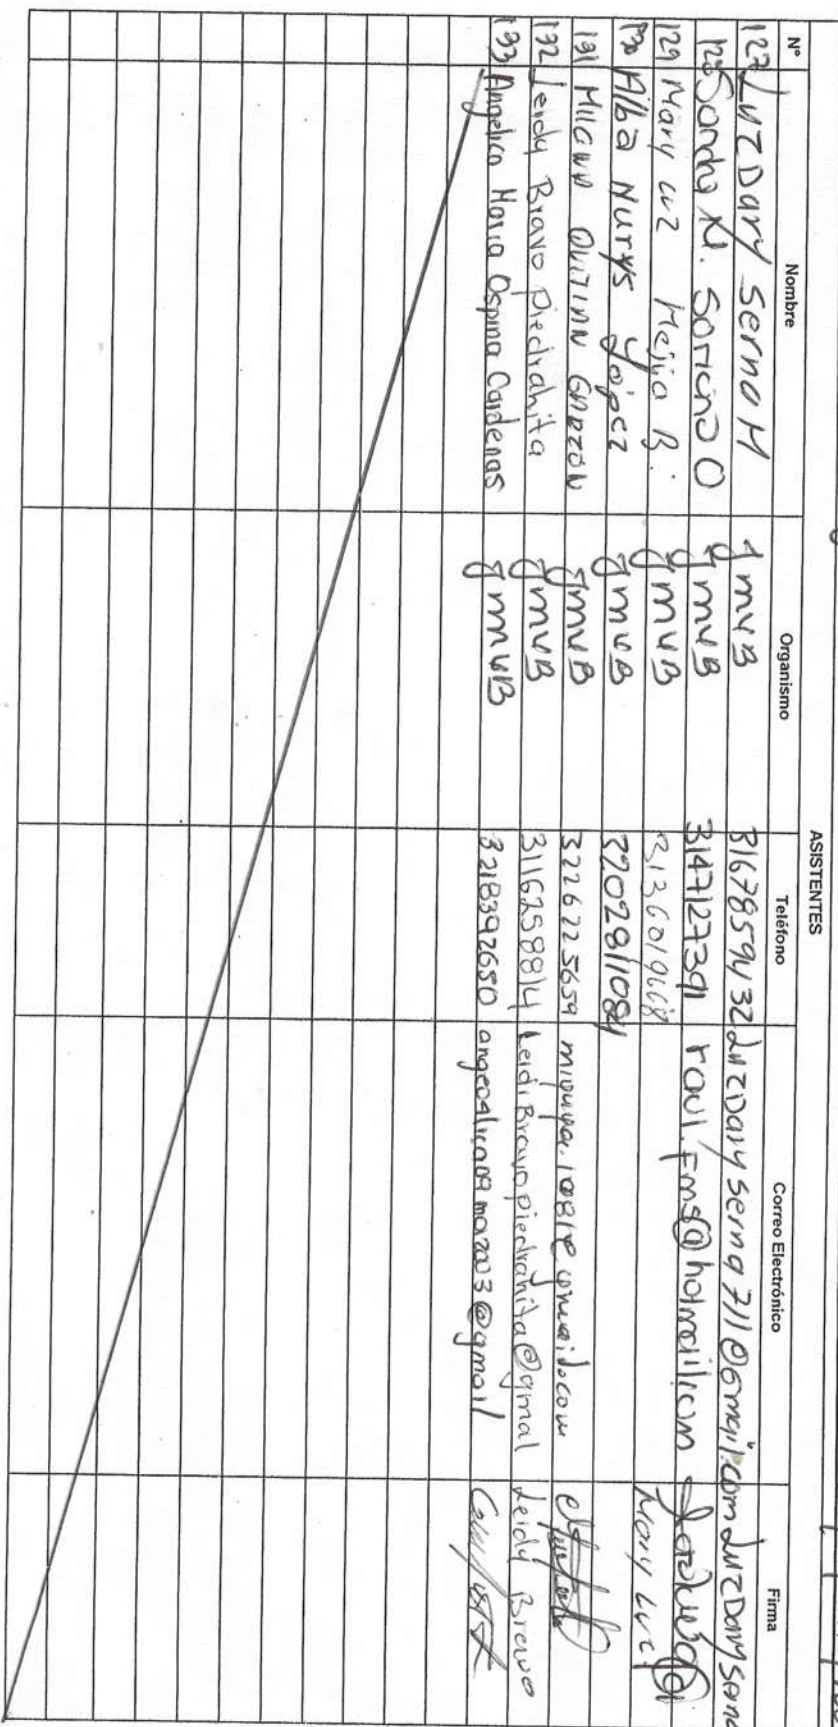 ASISTENTES
N° Nombre Organismo Teléfono Correo Electrónico Firma
127 Luz Dary Serna M JMVB 3167859432 LuzDarySerna711@Gmail.com Luz Dary Serna
128 Sandra M. Soriano O JMVB 3147127391 raul.fms@hotmail.com
129 Mary Luz Mejia B. JMVB 3136019668 Mary Luz
130 Alba Nurys Yepez JMVB 3202811084
131 Milena Quitian Garzon JMVB 3226225659
132 Leidy Bravo Piedrahita JMVB 3116258814 LeidiBravopiedrahita@gmal Leidy Bravo
133 Angelica Maria Ospina Cardenas JMVB 3218392650 @gmail